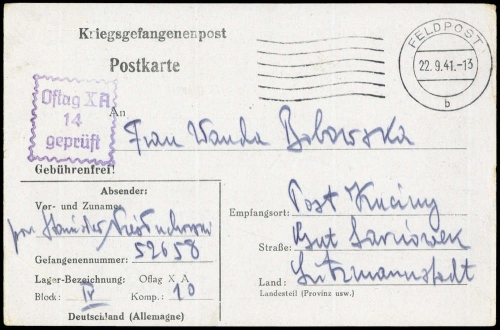 Kriegsgefangenenpost
Postkarte
FELDPOST
22.9.41.-13
b
Oflag X A
14
geprüft
An
Frau Wanda Bobowska
Gebührenfrei!
Absender:
Vor- und Zuname:
por. Stanisław
Gefangenennummer: 52658
Lager-Bezeichnung: Oflag X A
Block: IV Komp.: 10
Deutschland (Allemagne)
Empfangsort: Post
Straße: Gut
Land: Litzmannstadt
Landesteil (Provinz usw.)